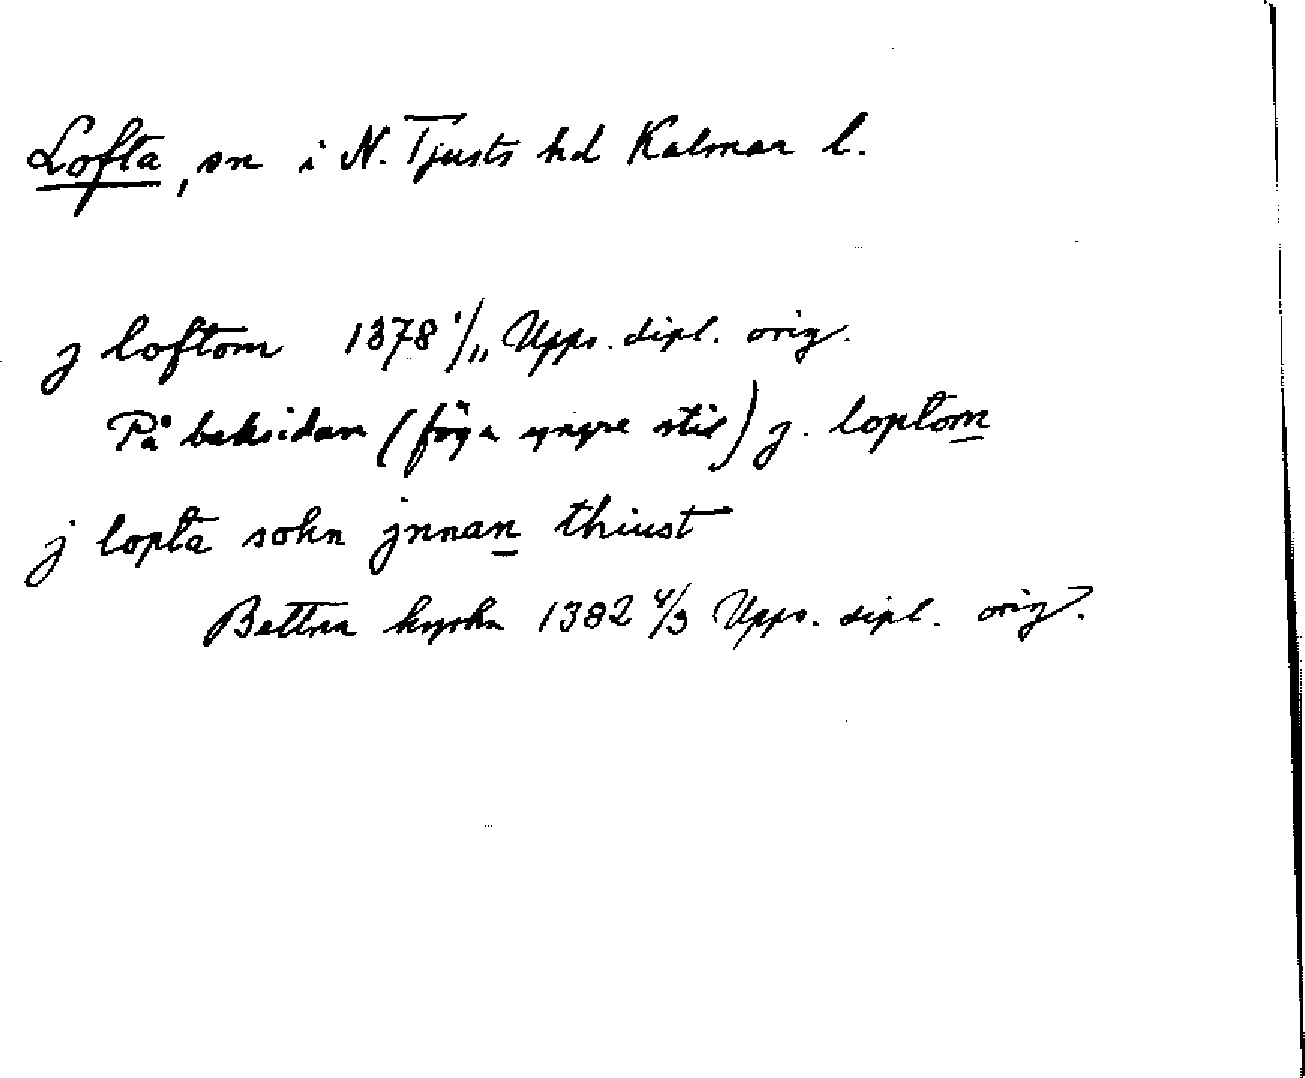 Lofta, sn i N. Tjusts hd Kalmar l.
j loftom 1378 1/11 Upps. dipl. orig.
På baksidan (föga yngre stil) j. loptom
j lopta sokn jnnan thiust
Bettna kyrka 1382 4/3 Upps. dipl. orig.